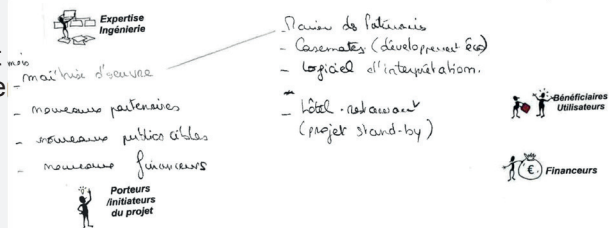 Expertise
Ingénierie
mois
- maîtrise d'oeuvre
- nouveaux partenaires
- nouveaux publics cibles
- nouveaux financeurs
Porteurs
/initiateurs
du projet
de
- Casemates (développement éco)
- logiciel d'interprétation.
-
- hôtel-restaurant
(projet stand-by)
Bénéficiaires
Utilisateurs
€
Financeurs